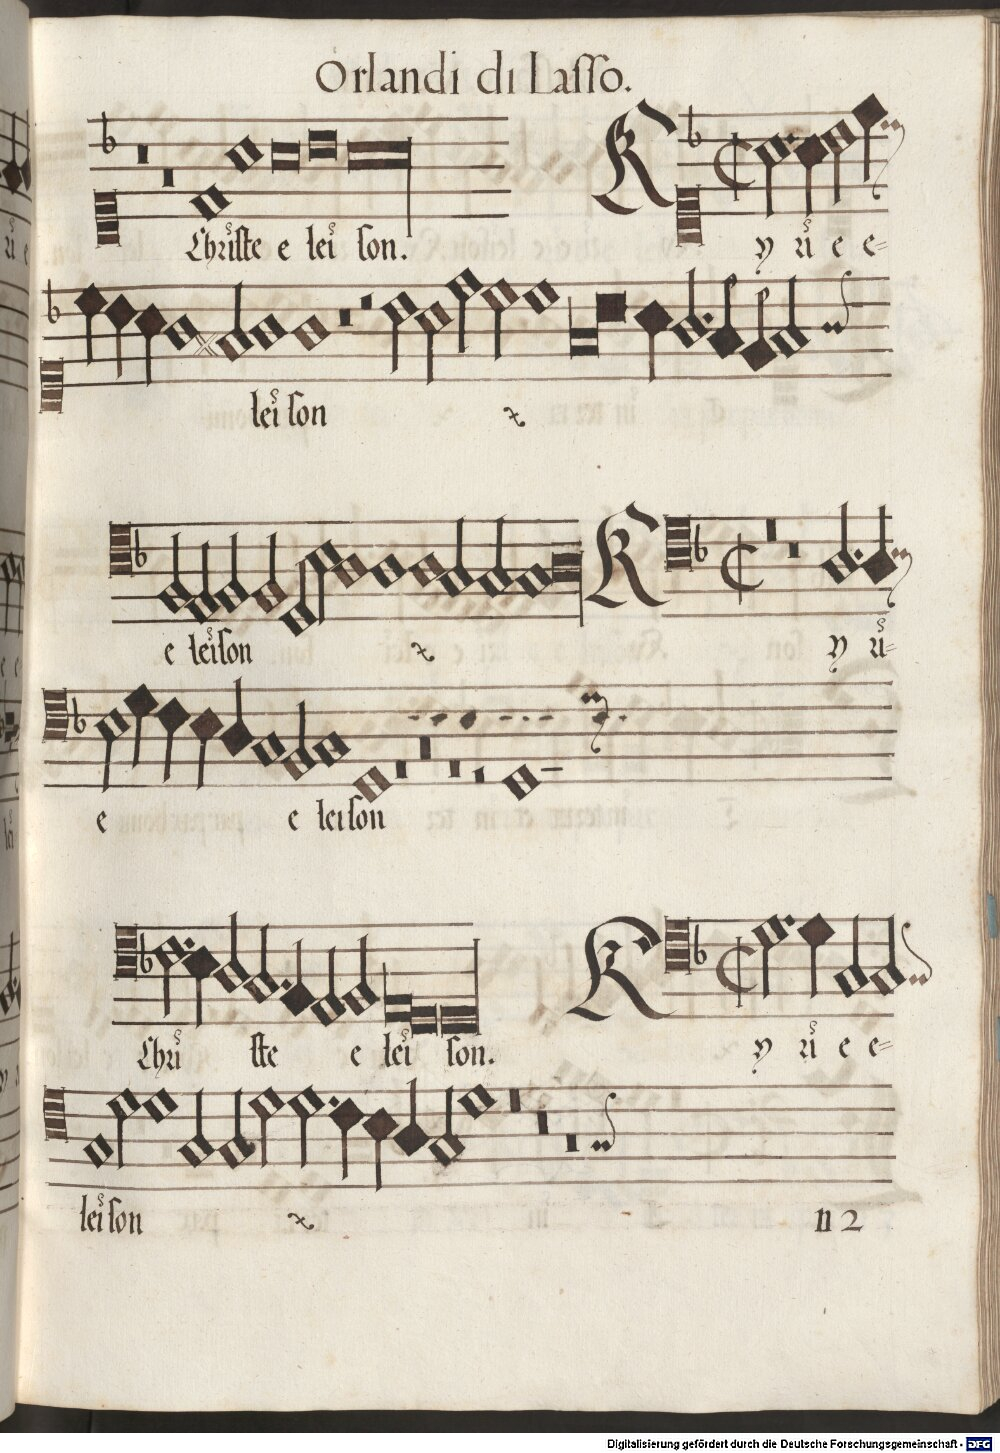 Orlandi di Lasso.
Christe e lei son. K y ri e e=
lei son
e leison K y ri=
e e leison
Chri ste e lei son. K y ri e e=
leison
n 2
Digitalisierung gefördert durch die Deutsche Forschungsgemeinschaft - DFG